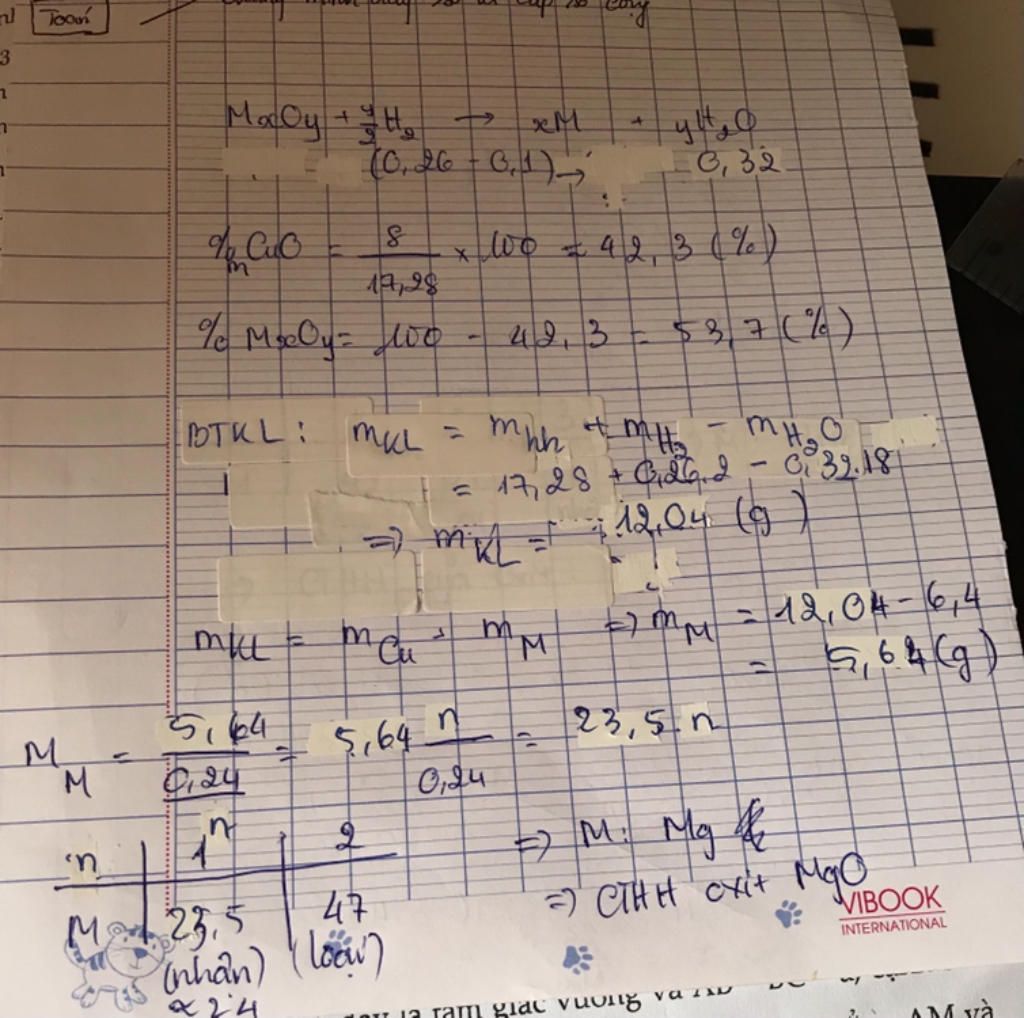 Toán
MxOy + y/2 H₂ → xM + yH₂O
(0,26 - 0,1) → 0,32
%mCuO = 8/17,28 × 100 = 42,3 (%)
% MxOy = 100 - 42,3 = 53,7 (%)
BTKL: mKL = mhh + mH₂ - mH₂O
= 17,28 + 0,26.2 - 0,32.18
=> mKL = 12,04 (g)
mKL = mCu + mM => mM = 12,04 - 6,4
= 5,64 (g)
MM = 5,64/(0,24/n) = 5,64 n/0,24 = 23,5.n
n | 1 | 2 => M: Mg
M | 23,5 | 47 => CTHH oxit MgO
(nhận) (loại)
≈ 24
VIBOOK
INTERNATIONAL
là tam giác vuông và AB
AM và